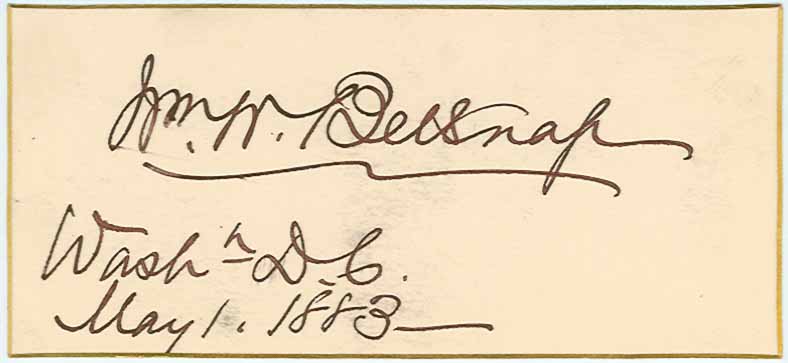 Wm. W. Belknap
Washn D.C.
May 1. 1883